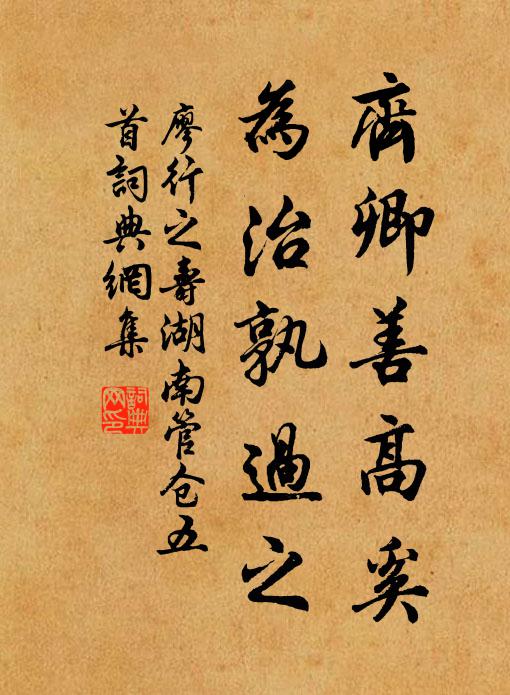 齊卿善高奚
為治孰過之
廖行之壽湖南管仓五
首詞典網集
詞典
网印